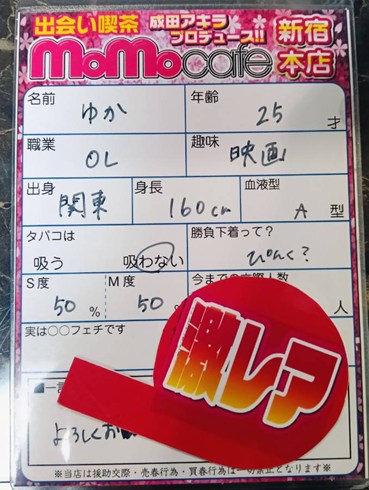 出会い喫茶 成田アキラ プロデュース!! 新宿本店
MoMocafe
名前 ゆか 年齢 25 才
職業 OL 趣味 映画
出身 関東 身長 160cm 血液型 A 型
タバコは 吸う 吸わない 勝負下着って? ぴんく?
S度 50 % M度 50 今までの交際人数 人
実は○○フェチです
激レア
■一言
よろしくお
※当店は援助交際・売春行為・買春行為は一切禁止となります※